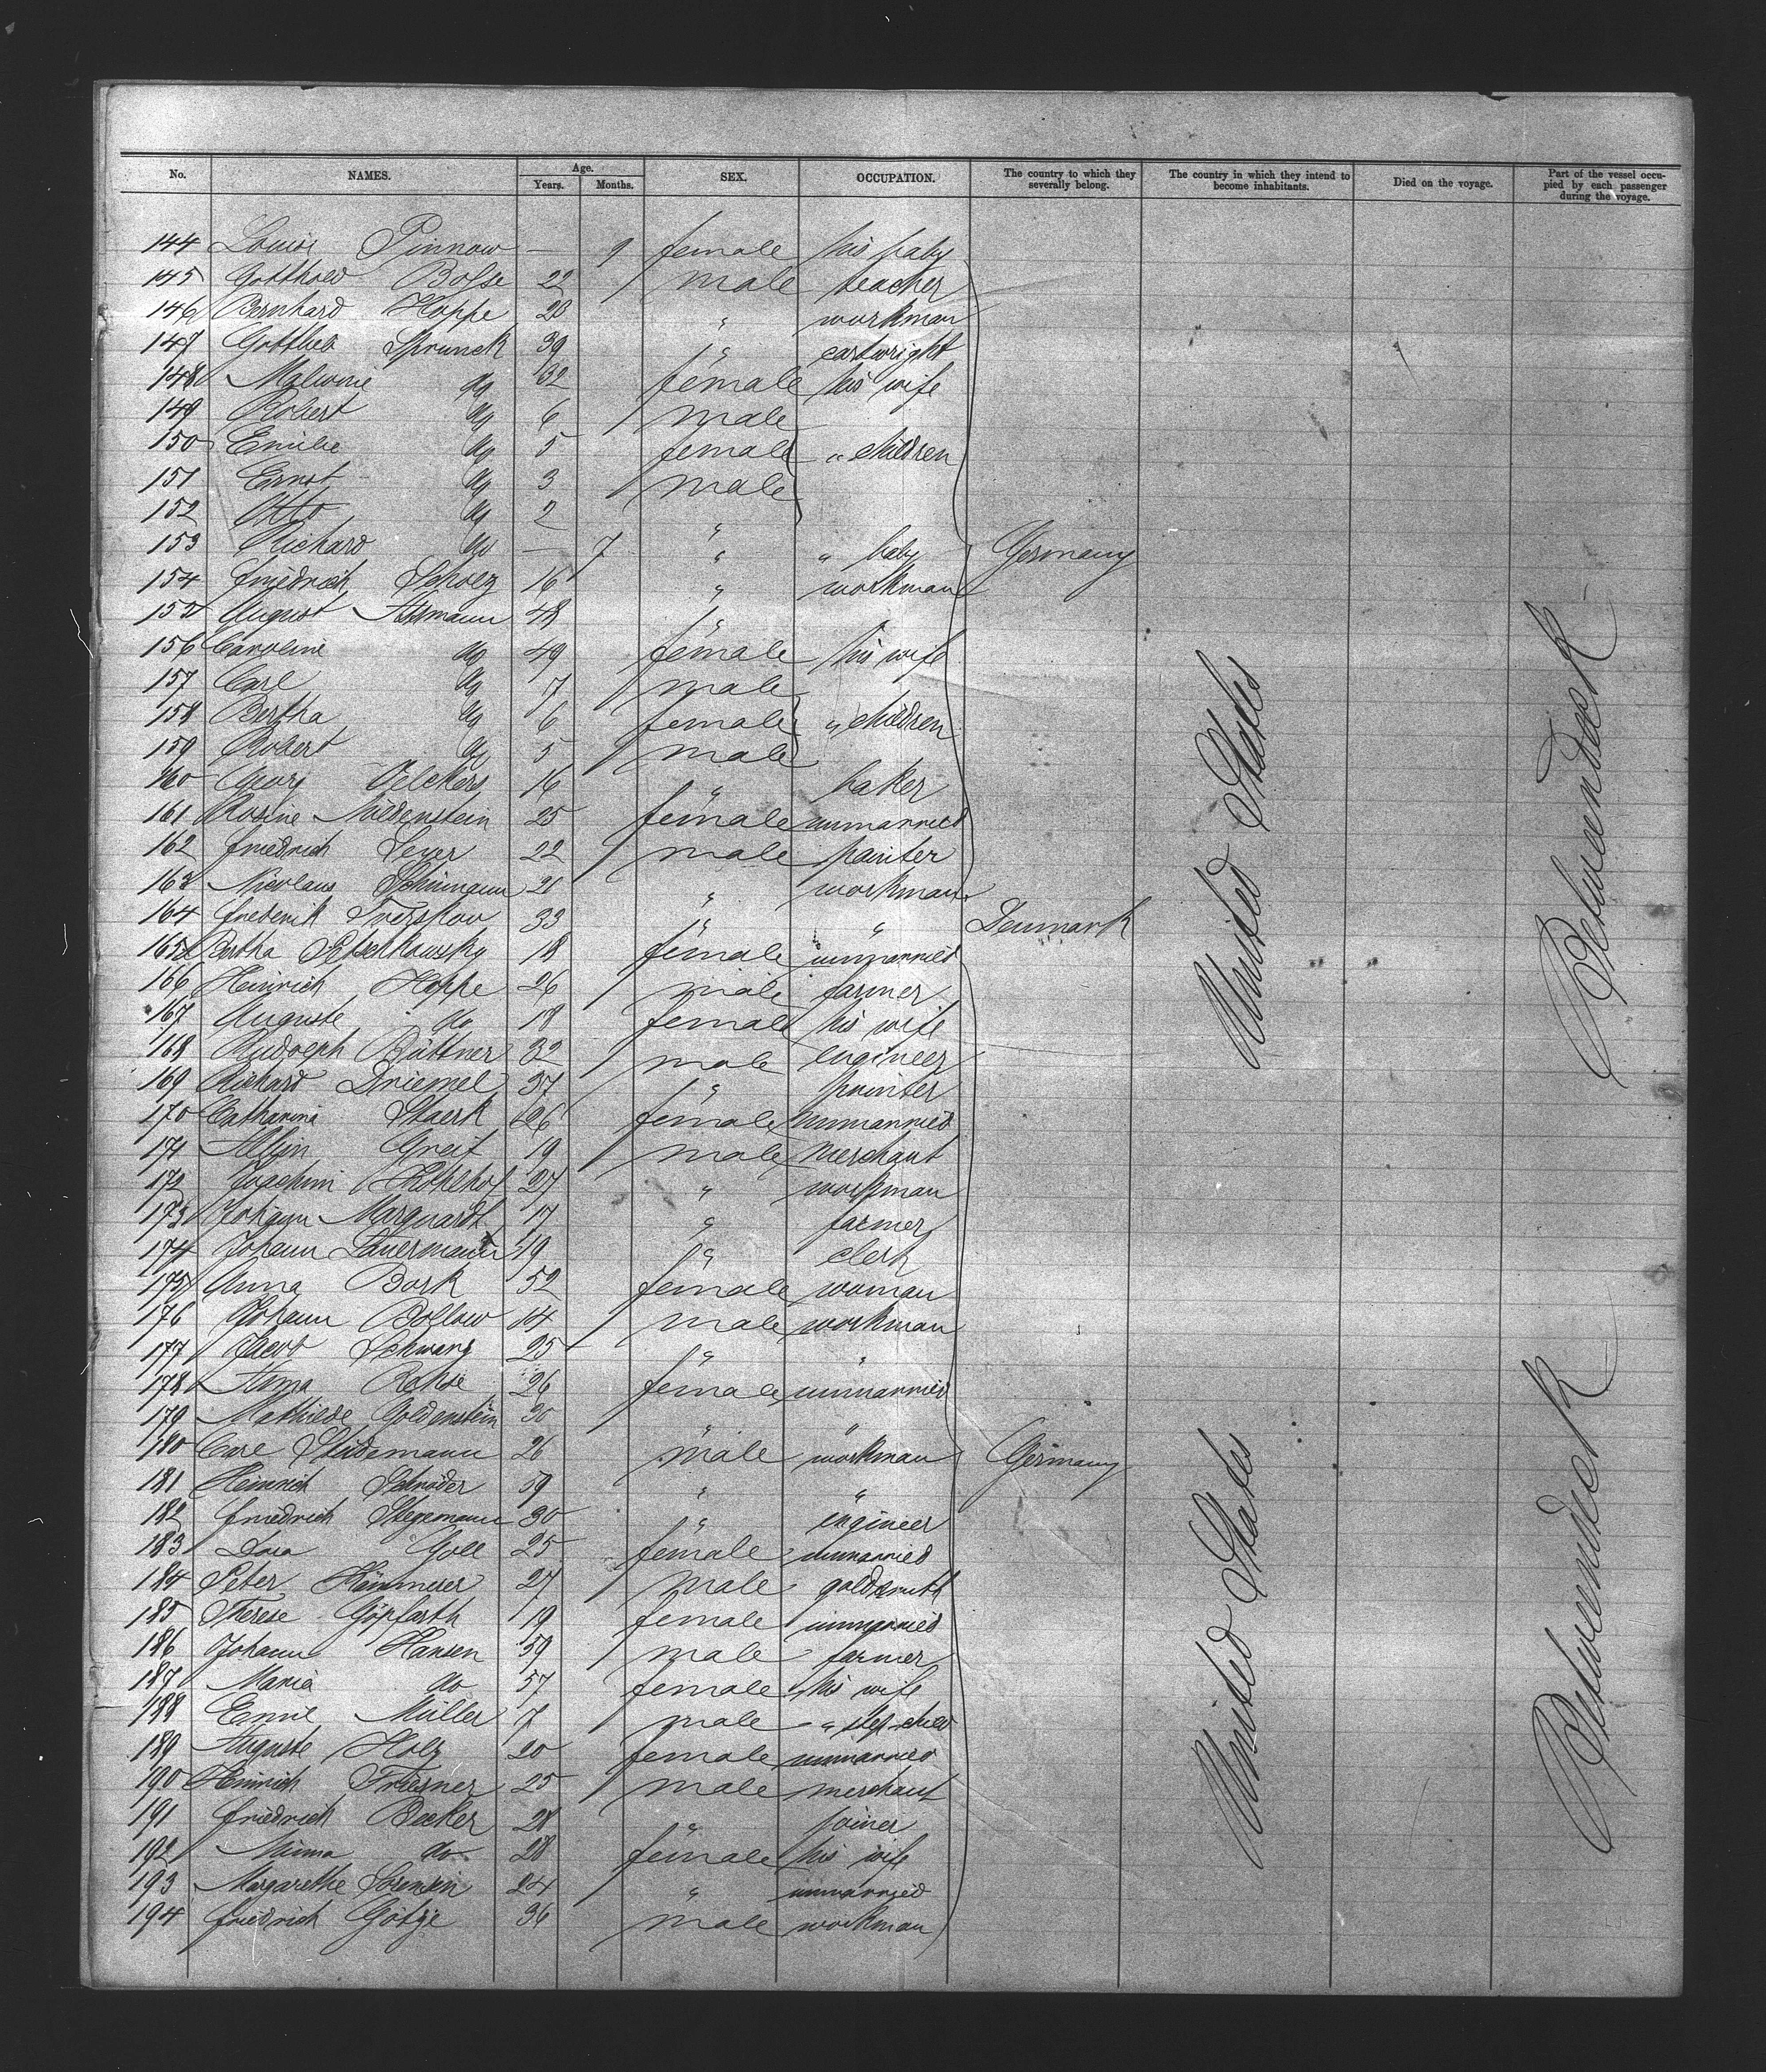 No. NAMES. Age. Years. Months. SEX. OCCUPATION. The country to which they severally belong. The country in which they intend to become inhabitants. Died on the voyage. Part of the vessel occupied by each passenger during the voyage.
144 Louise Pinnow — 9 female his baby
145 Gotthold Bosse 22 male teacher
146 Bernhard Hoppe 28 " workman
147 Gottlieb Sprunck 39 " cartwright
148 Malwine do 32 female his wife
149 Robert do 6 male
150 Emilie do 5 female " children
151 Ernst do 3 male
152 Otto do 2 "
153 Richard do — 7 " " baby Germany
154 Friedrich Scholz 16 " workman
155 August Assmann 48 "
156 Caroline do 49 female his wife
157 Carl do 7 male
158 Bertha do 6 female " children
159 Robert do 5 male
160 Georg Oelckers 16 " baker
161 Rosine Mildenstein 25 female unmarried
162 Friedrich Seyer 22 male painter
163 Nicolaus Schümann 21 " workman
164 Frederik Torskow 33 " " Denmark
165 Bertha 18 female unmarried
166 Heinrich Hoppe 26 male farmer
167 Auguste do 18 female his wife
168 Rudolph Büttner 32 male engineer
169 Richard Driemel 37 " painter
170 Catharina Staerk 26 female unmarried
171 Albin Greif 19 male merchant
172 Joachim Kohlhof 27 " workman
173 Johann Marquardt 17 " farmer
174 Johann Lauermann 19 " clerk
175 Anna Bork 52 female woman
176 Johann Bollow 14 male workman
177 Jacob Schwarz 25 " "
178 Anna Rohse 26 female unmarried
179 Mathilde Goldenstein 30 " "
180 Carl Stüdemann 26 male workman Germany
181 Heinrich Schröder 59 " "
182 Friedrich Stegemann 30 " engineer
183 Dora Goll 25 female unmarried
184 Peter Hämmerer 27 male goldsmith
185 Therese Göpfarth 19 female unmarried
186 Johann Hansen 59 male farmer
187 Maria do 57 female his wife
188 Emil Müller 7 male " step-child
189 Auguste Holz 20 female unmarried
190 Heinrich Friesner 25 male merchant
191 Friedrich Becker 28 " joiner
192 Minna do 28 female his wife
193 Margarethe Sörensen 24 " unmarried
194 Friedrich Götje 36 male workman
United States
Betweendeck
United States
Betweendeck